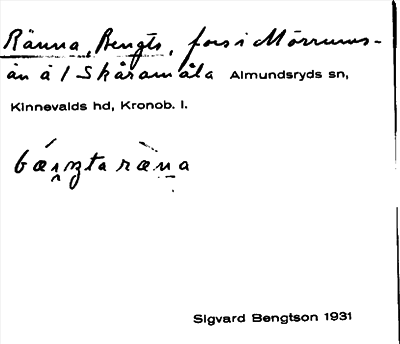 Ränna, Bengts, fors i Mörrums-
ån å / Skäramåla Almundsryds sn,
Kinnevalds hd, Kronob. l.
bæŋzta ræna
Sigvard Bengtson 1931